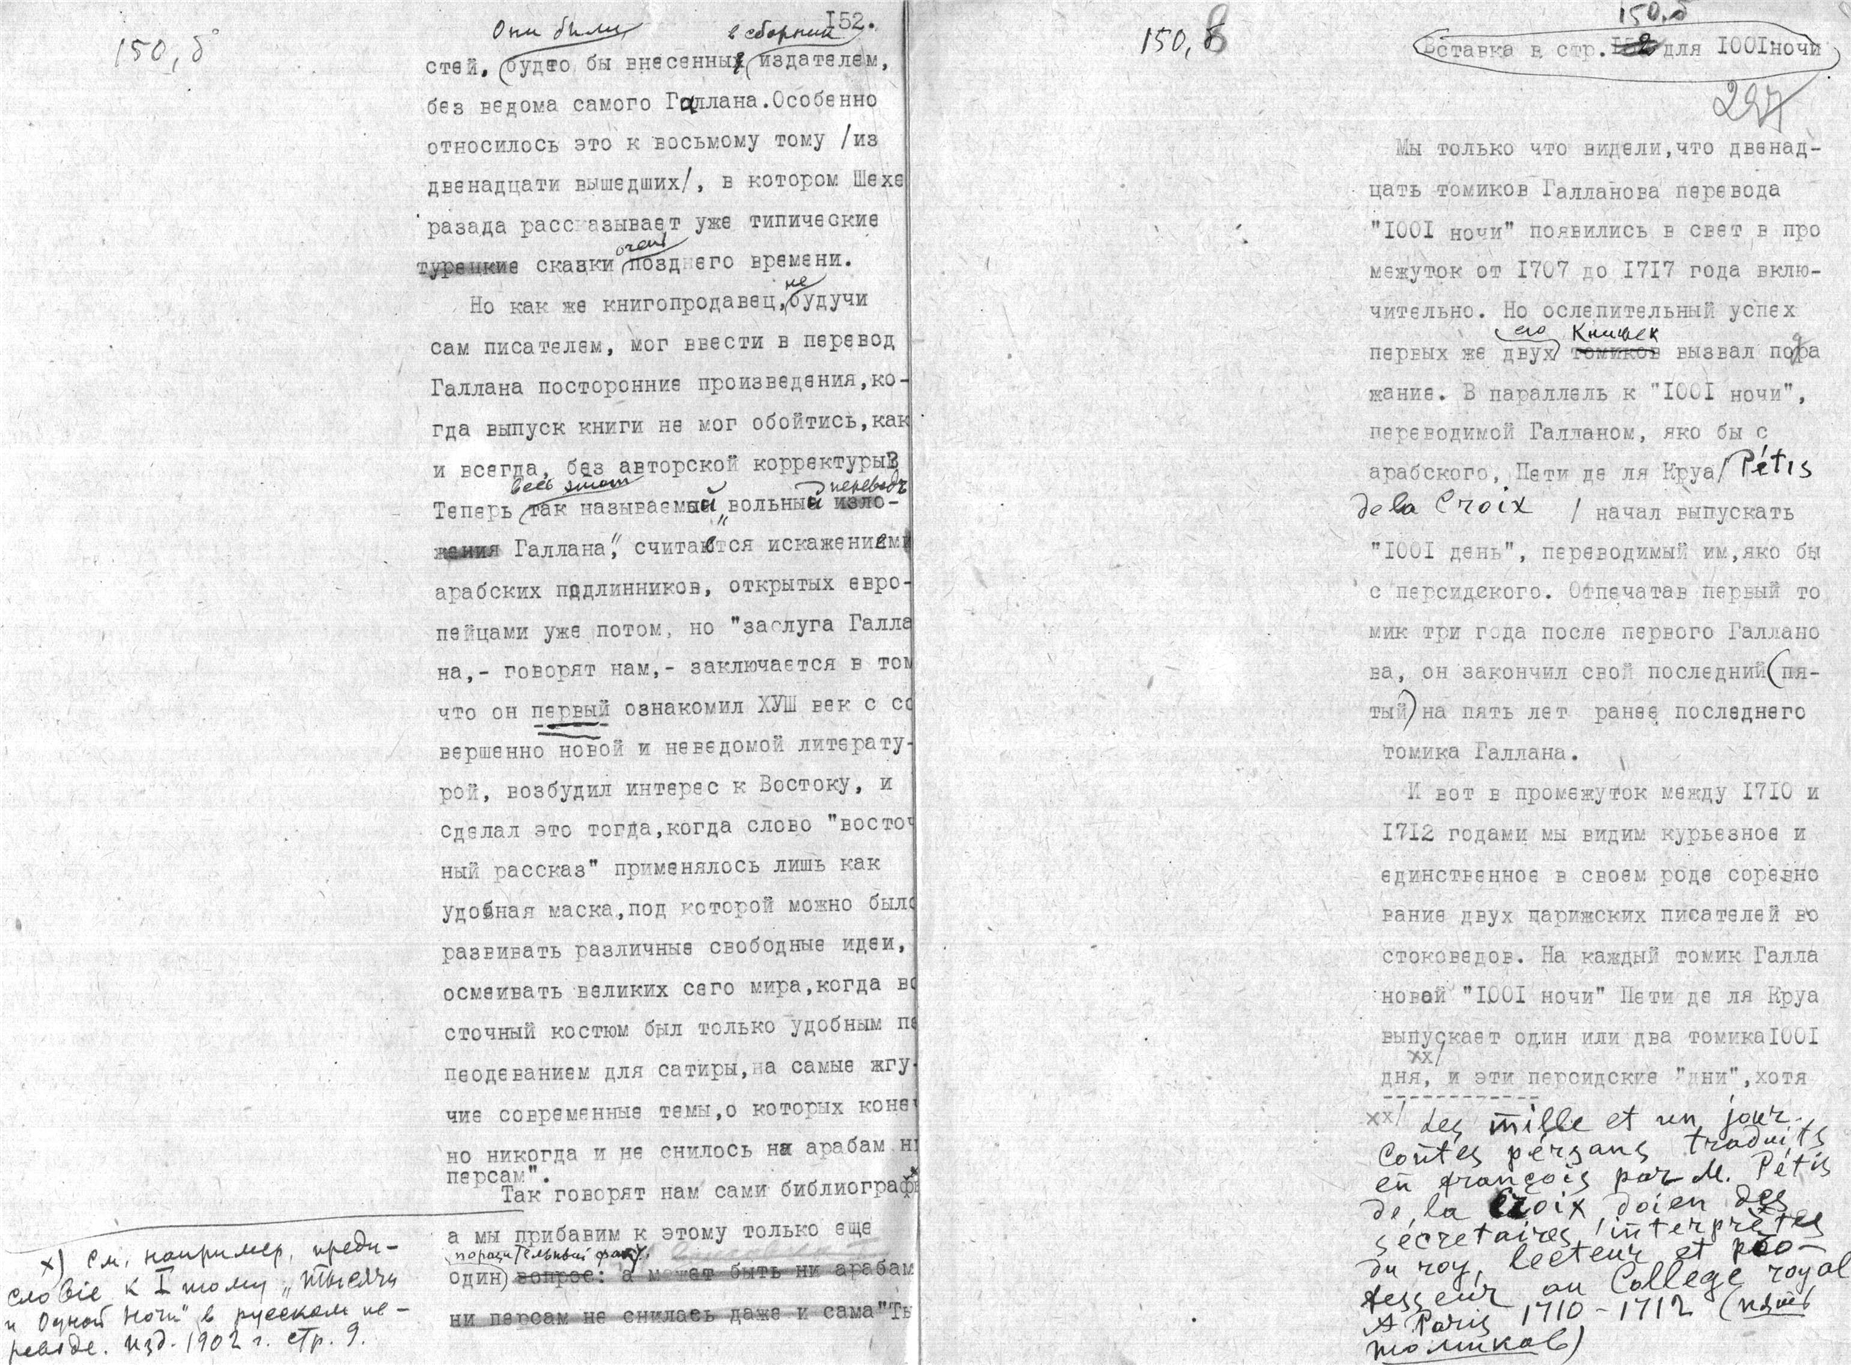 150, б
152.
Они были в сборник
стей, будто бы внесенные издателем,
без ведома самого Галлана.Особенно
относилось это к восьмому тому /из
двенадцати вышедших/, в котором Шехе
разада рассказывает уже типические
очень
турецкие сказки позднего времени.
не
Но как же книгопродавец, будучи
сам писателем, мог ввести в перевод
Галлана посторонние произведения,ко-
гда выпуск книги не мог обойтись,как
и всегда, без авторской корректуры?
весь этот переводъ
Теперь так называемый "вольный изло-
жения Галлана", считается искажениями
арабских подлинников, открытых евро-
пейцами уже потом, но "заслуга Галла
на,- говорят нам,- заключается в том
что он первый ознакомил ХУШ век с со
вершенно новой и неведомой литерату-
рой, возбудил интерес к Востоку, и
сделал это тогда,когда слово "восточ
ный рассказ" применялось лишь как
удобная маска,под которой можно было
развивать различные свободные идеи,
осмеивать великих сего мира,когда во
сточный костюм был только удобным пе
пеодеванием для сатиры,на самые жгу-
чие современные темы,о которых конеч
но никогда и не снилось ни арабам ни
персам".
Так говорят нам сами библиографы x
а мы прибавим к этому только еще
поразительный фактъ.
один вопрос: а может быть ни арабам
ни персам не снилась даже и сама"Ты
x) См, например, преди-
словіе к I тому „Тысячи
и Одной Ночи" в русском пе-
реводе. изд. 1902 г. стр. 9.
150, в
150.б
Вставка в стр. 152 для 1001 ночи
297
Мы только что видели,что двенад-
цать томиков Галланова перевода
"1001 ночи" появились в свет в про
межуток от 1707 до 1717 года вклю-
чительно. Но ослепительный успех
его Книжек
первых же двух томиков вызвал подра
жание. В параллель к "1001 ночи",
переводимой Галланом, яко бы с
арабского, Пети де ля Круа/ Pétis
de la Croix / начал выпускать
"1001 день", переводимый им,яко бы
с персидского. Отпечатав первый то
мик три года после первого Галлано
ва, он закончил свой последний (пя-
тый) на пять лет ранее последнего
томика Галлана.
И вот в промежуток между 1710 и
1712 годами мы видим курьезное и
единственное в своем роде соревно
вание двух парижских писателей во
стоковедов. На каждый томик Галла
новой "1001 ночи" Пети де ля Круа
выпускает один или два томика 1001
xx/
дня, и эти персидские "дни",хотя
xx/ Les mille et un jour.
Contes persans traduits
en françois par M. Pétis
de la Croix doien des
secretaires interprètes
du roy, lecteur et pro-
fesseur au College royal
A Paris 1710-1712 (пять
томиков)